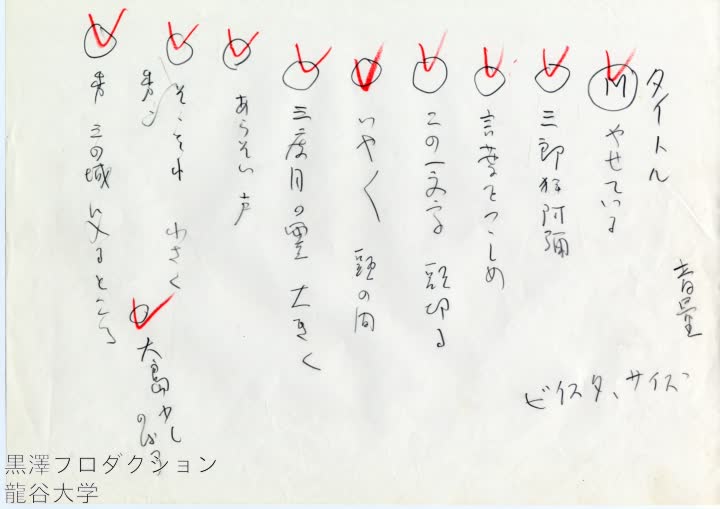 音量
ビイスタ、サイズ
タイトル
M やせている
三郎 狂阿彌
言葉をつゝしめ
この一文字 頭切る
いやく 頭の内
三度目の 大きく
あらそい 声
そ、それ 小さく
大島 少し
三の城 に入るところ
黒澤プロダクション
龍谷大学